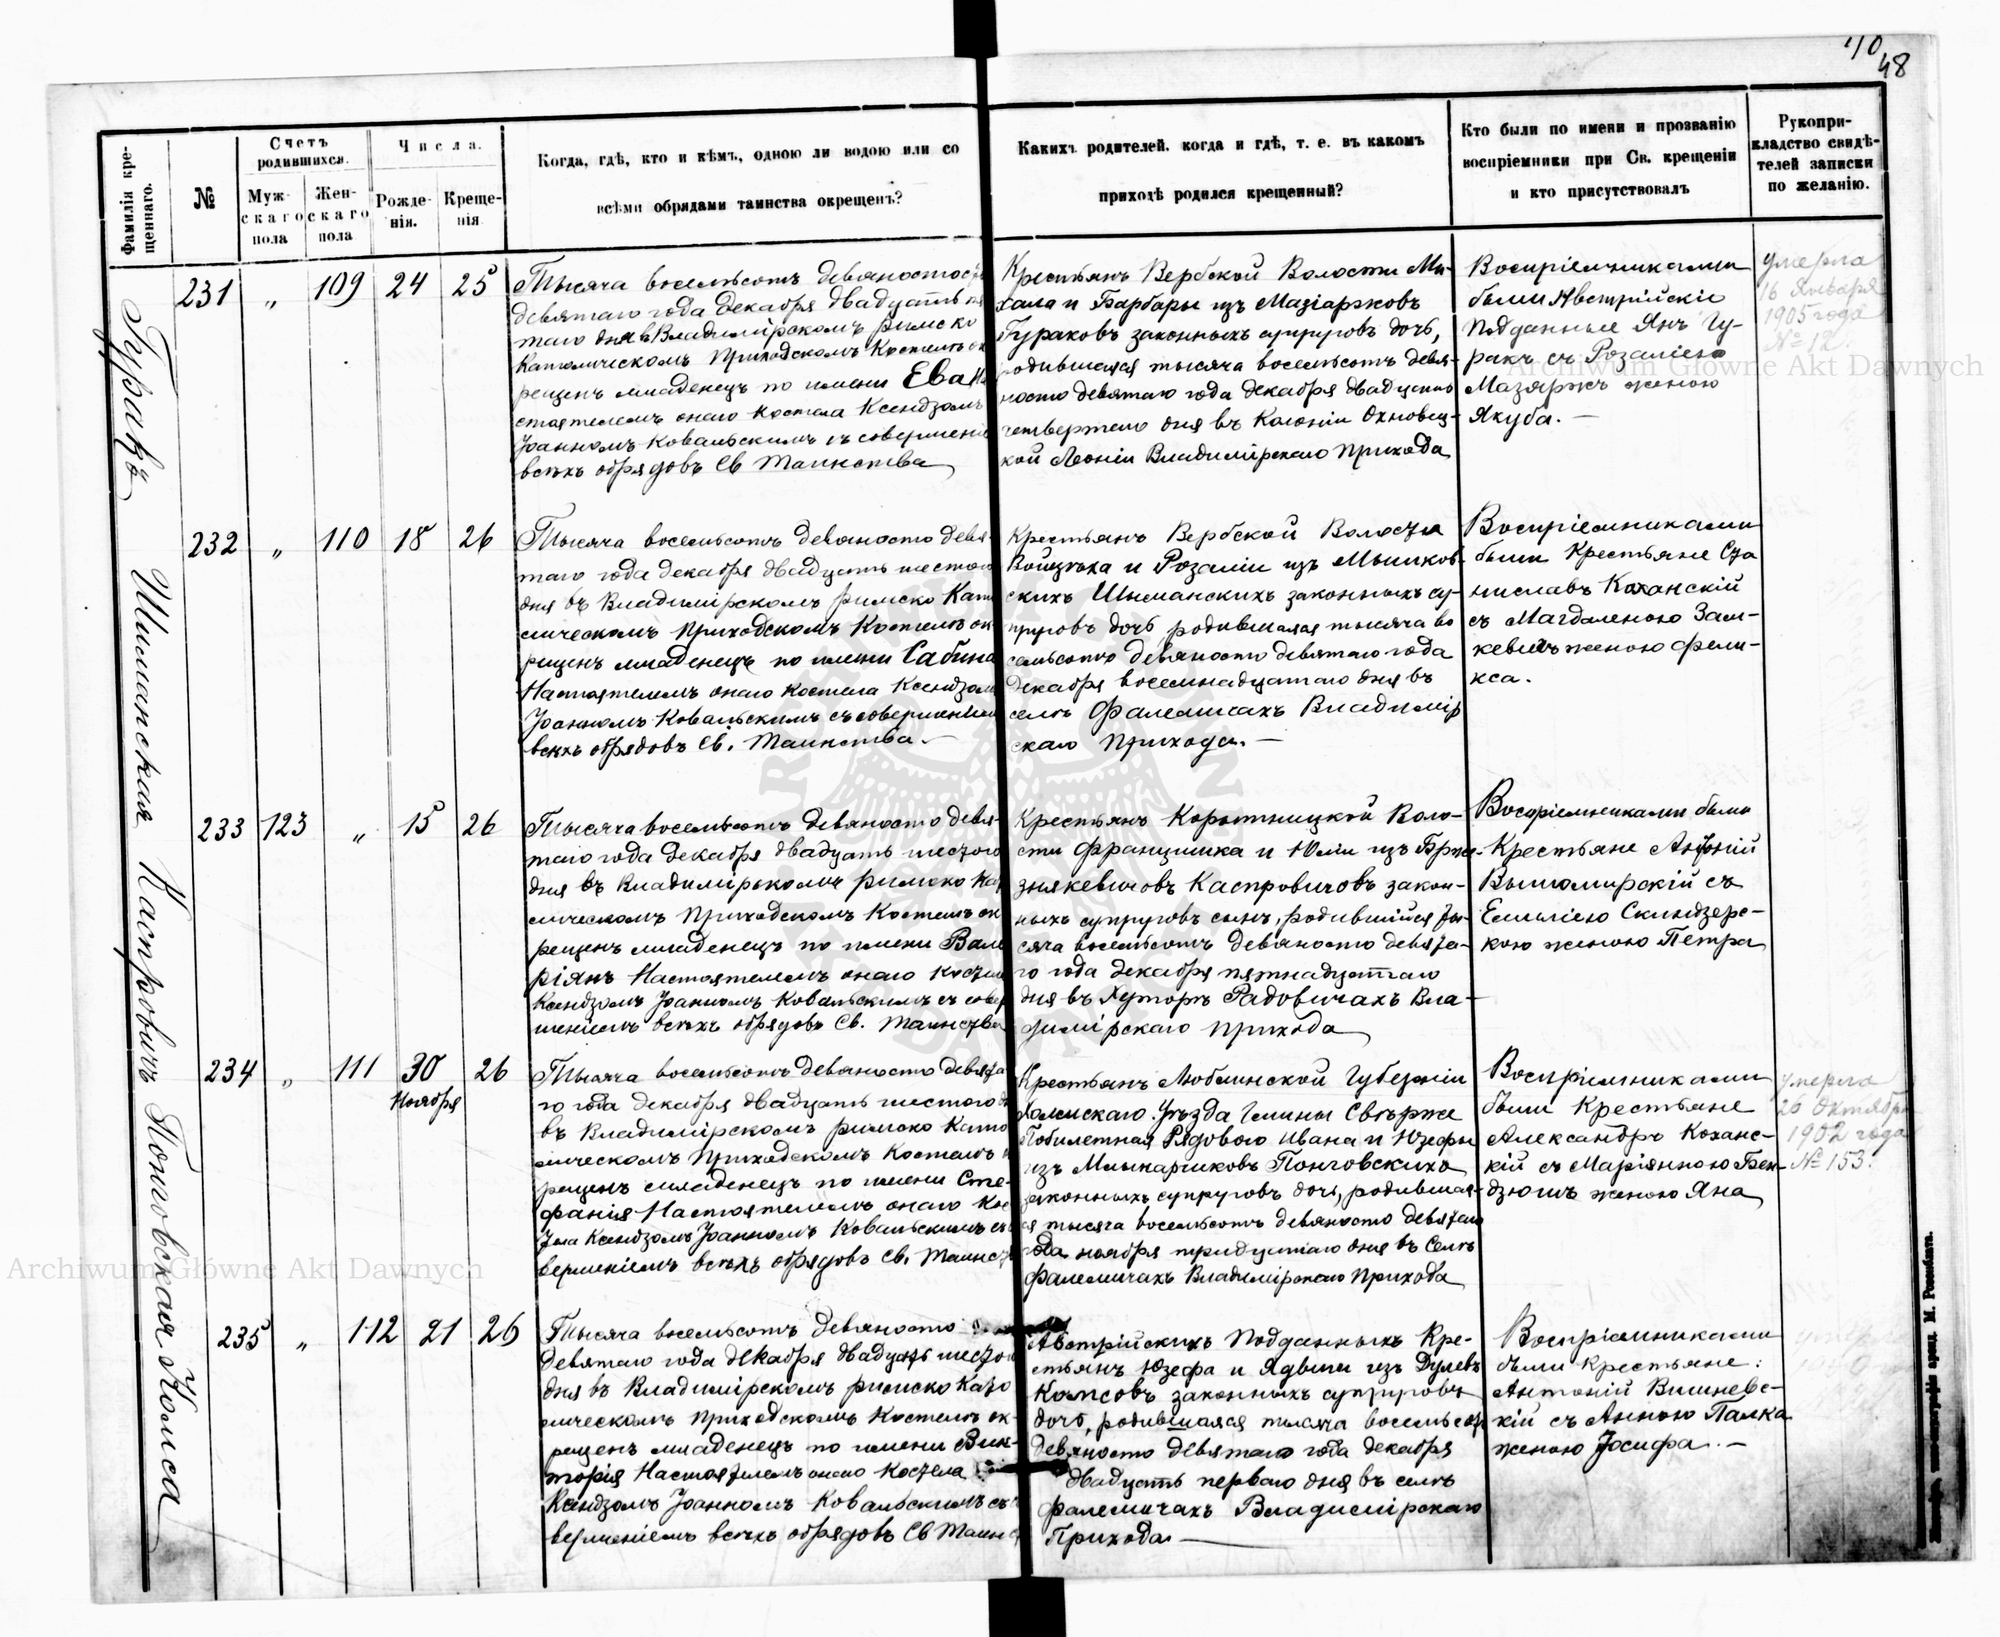 40
48
Фамилія кре-
щеннаго.
№
Счетъ
родившихся.
Муж-
скаго
пола
Жен-
скаго
пола
Числа.
Рожде-
нія.
Креще-
нія
Когда, гдѣ, кто и кѣмъ, одною ли водою или со
всѣми обрядами таинства окрещенъ?
Какихъ родителей, когда и гдѣ, т. е. въ какомъ
приходѣ родился крещенный?
Кто были по имени и прозванію
воспріемники при Св. крещеніи
и кто присутствовалъ
Рукопри-
кладство свидѣ-
телей записки
по желанію.
Гуракъ
231 „ 109 24 25
Тысяча восемьсотъ девяносто
девятаго года Декабря двадцать
таго дня в Владимірскомъ римско
Католическомъ Приходскомъ Костелѣ ок
рещенъ младенецъ по имени Ева На
стоятелемъ онаго костела Ксендзомъ
Іоанномъ Ковальскимъ съ совершені
всѣхъ обрядовъ Св Таинства
Крестьянъ Вербской Волости Ми-
хала и Барбары изъ Мазіаржовъ
Гураковъ законныхъ супруговъ дочь,
родившаяся тысяча восемьсотъ девя-
носто девятаго года декабря двадцать
четвертаго дня въ Колоніи Охновец-
кой Леоніи Владимірскаго Прихода
Воспріемниками
были Австрійскіе
Подданные Янъ Гу-
ракъ съ Розаліею
Мазяржъ женою
Якуба. —
умерла
16 Января
1905 года
№ 12.
Шиманская
232 „ 110 18 26
Тысяча восемьсотъ девяносто девя-
таго года декабря двадцать шестого
дня въ Владимірскомъ римско Като
лическомъ Приходскомъ Костелѣ ок-
рещенъ младенецъ по имени Сабина
Настоятелемъ онаго костела Ксендзомъ
Іоанномъ Ковальскимъ съ совершеніем
всѣхъ обрядовъ Св. Таинства. —
Крестьянъ Вербской Волости
Войцѣха и Розаліи изъ Мышков-
скихъ Шыманскихъ законныхъ су-
пруговъ дочь родившаяся тысяча во
семьсотъ девяносто девятаго года
Декабря восемнадцатаго дня въ
селѣ Фалемичахъ Владимір
скаго Прихода. —
Воспріемниками
были Крестьяне Ста
ниславъ Коханскій
съ Магдаленою Зам-
кевичъ женою Фели-
кса.
Каспровичъ
233 123 „ 15 26
Тысяча восемьсотъ девяносто девя-
таго года декабря двадцать шестого
дня въ Владимірскомъ римско Кат
лическомъ Приходскомъ Костелѣ ок
рещенъ младенецъ по имени Вале
ріянъ Настоятелемъ онаго костела
Ксендзомъ Іоанномъ Ковальскимъ съ совер
шеніемъ всѣхъ обрядовъ Св. Таинства
Крестьянъ Корытницкой Воло-
сти Францишка и Юліи изъ
зиякевичовъ Каспровичовъ закон-
ныхъ супруговъ сынъ, родившійся ты-
сяча восемьсотъ девяносто девята-
го года декабря пятнадцатаго
дня въ Хуторѣ Радовичахъ Вла-
димірскаго прихода
Воспріемниками были
Крестьяне Антоній
Вышомирскій съ
Емиліею Скиндзерс-
кою женою Петра
Понговская
234 „ 111 30 26
Ноября
Тысяча восемьсотъ девяносто девята
го года декабря двадцать шестого дн
въ Владимірскомъ римско Като
лическомъ Приходскомъ Костелѣ
рещенъ младенецъ по имени Сте-
фанія Настоятелемъ онаго Кос
тела Ксендзомъ Іоанномъ Ковальскимъ съ
вершеніемъ всѣхъ обрядовъ Св. Таинст
Крестьянъ Люблинской Губерніи
Холмскаго Уѣзда Гмины Свѣрже
Побилетная Рядового Ивана и Юзефы
изъ Млынарчиковъ Понговскихъ
законныхъ супруговъ дочь, родившая-
ся тысяча восемьсотъ девяносто девятаго
года ноября тридцатаго дня въ Селѣ
Фалемичахъ Владимірскаго Прихода
Воспріемниками
были Крестьяне
Александръ Коханс-
кій съ Маріянною Бен-
дзюшъ женою Яна
умерла
26 Октября
1902 года
№ 153.
Комса
235 „ 112 21 26
Тысяча восемьсотъ девяносто
девятаго года декабря двадцать шестого
дня въ Владимірскомъ римско Като
лическомъ Приходскомъ Костелѣ ок-
рещенъ младенецъ по имени Вик-
торія Настоятелемъ онаго Костела
Ксендзомъ Іоанномъ Ковальскимъ съ
вершеніемъ всѣхъ обрядовъ Св Таинс
Австрійскихъ Подданныхъ Кре-
стьянъ Юзефа и Ядвиги изъ Дулевъ
Комсовъ законныхъ супруговъ
дочь, родившаяся тысяча восемьсот
девяносто девятаго года декабря
двадцать перваго дня въ селѣ
Фалемичахъ Владимірскаго
Прихода —
Воспріемниками
были крестьяне:
Антоній Вишневс-
кій съ Анною Палка
женою Іосифа. —
М. Розенблата.
Archiwum Główne Akt Dawnych
Archiwum Główne Akt Dawnych